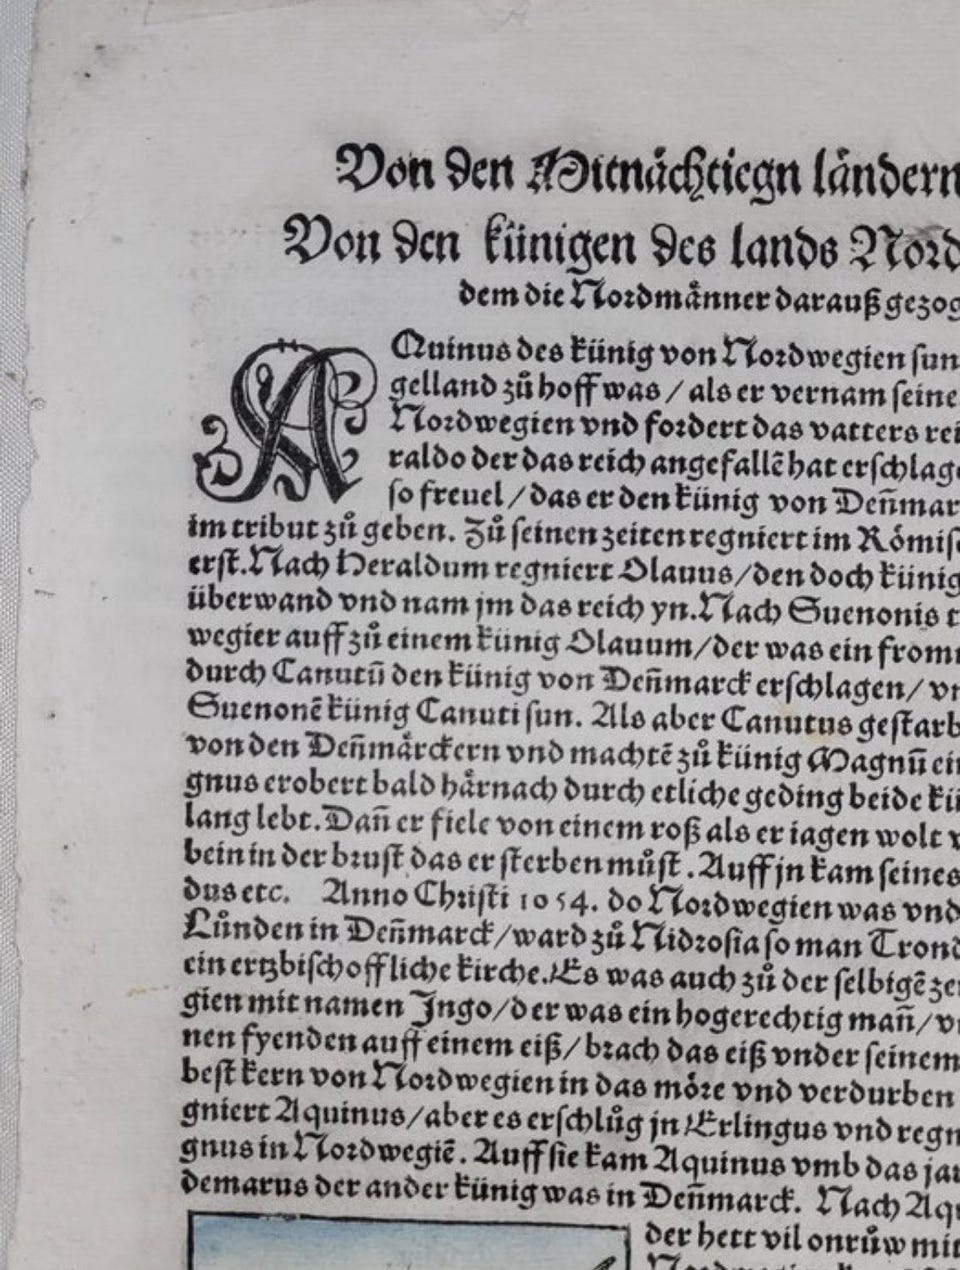 Von den Mitnåchtiegn låndern
Von den künigen des lands Nord
dem die Nordmånner darauß gezog
AQuinus des künig von Nordwegien sun
gelland zů hoff was / als er vernam seine
Nordwegien vnd fordert das vatters rei
raldo der das reich angefallē hat erschlage
so freuel / das er den künig von Deñmar
im tribut zů geben. Zů seinen zeiten regniert im Rômisc
erst. Nach Heraldum regniert Olauus/den doch künig
überwand vnd nam jm das reich yn. Nach Suenonis t
wegier auff zů einem künig Olauum/der was ein from
durch Canutū den künig von Deñmarck erschlagen/ vn
Suenonē künig Canuti sun. Als aber Canutus gestarb
von den Deñmårckern vnd machtē zů künig Magnū ein
gnus erobert bald hårnach durch etliche geding beide kü
lang lebt. Dañ er fiele von einem roß als er iagen wolt v
bein in der brust das er sterben můst. Auff jn kam seines
dus etc. Anno Christi 1054. do Nordwegien was vnd
Lůnden in Deñmarck/ward zů Nidrosia so man Trond
ein ertzbischoffliche kirche. Es was auch zů der selbigē zei
gien mit namen Jngo/der was ein hogerechtig mañ/ vn
nen fyenden auff einem eiß/ brach das eiß vnder seinem
best kern von Nordwegien in das môre vnd verdurben
gniert Aquinus/aber es erschlůg jn Erlingus vnd regn
gnus in Nordwegiē. Auff sie kam Aquinus vmb das jar
demarus der ander künig was in Deñmarck. Nach Aqu
der hett vil onrůw mit